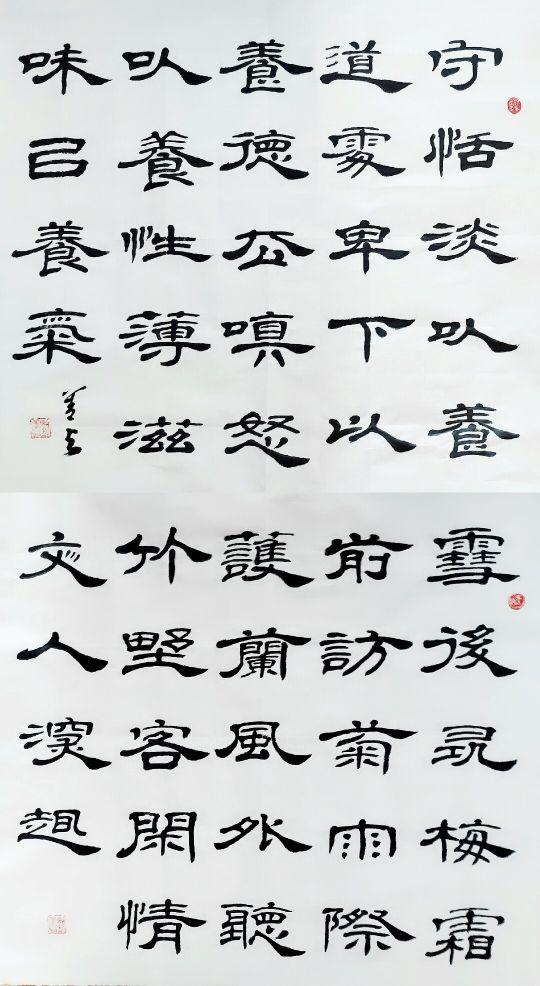 守恬淡㕥養
道處卑下以
養德去嗔怒
㕥養性薄滋
味㠯養氣
雪後尋梅霜
前訪菊雨際
護蘭風外聽
竹野客閑情
文人深趣